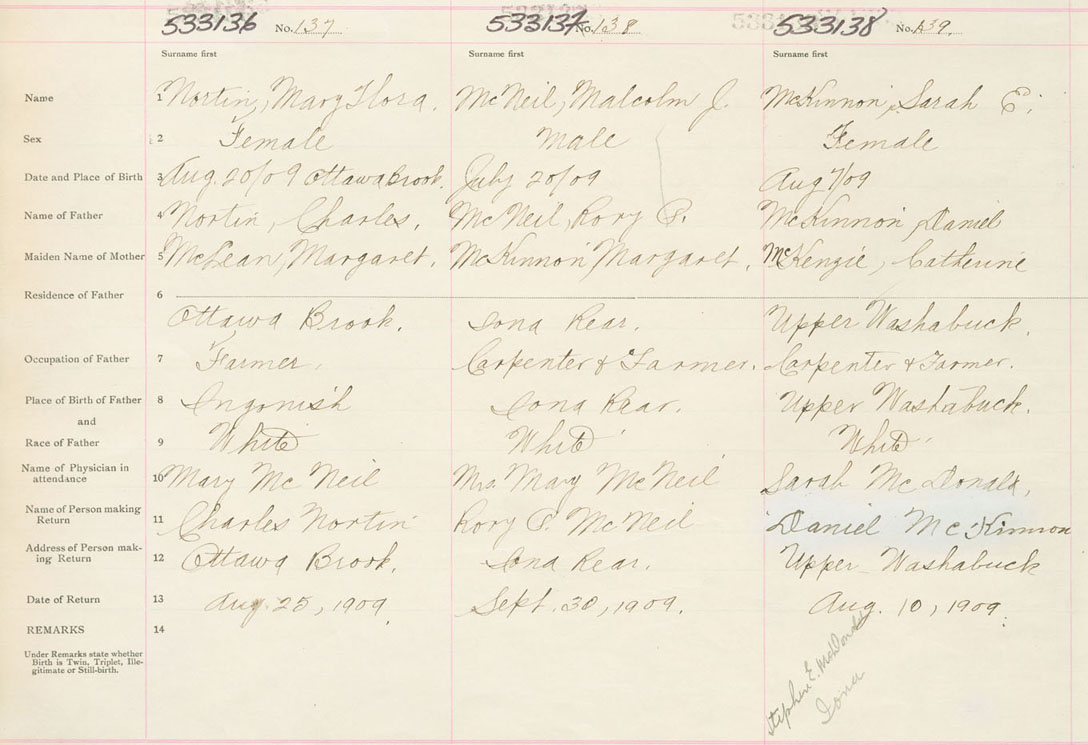 533136 No. 137 533137 No. 138 533138 No. 139.
Surname first Surname first Surname first
Name 1 Nortin, Mary Flora. McNeil, Malcolm J. McKinnon, Sarah E.
Sex 2 Female Male Female
Date and Place of Birth 3 Aug. 20/09 Ottawa Brook. July 20/09 Aug 7/09
Name of Father 4 Nortin, Charles. McNeil, Rory P. McKinnon, Daniel
Maiden Name of Mother 5 McLean, Margaret. McKinnon, Margaret. McKenzie, Catherine
Residence of Father 6
Ottawa Brook. Iona Rear. Upper Washabuck.
Occupation of Father 7 Farmer. Carpenter & Farmer. Carpenter & Farmer.
Place of Birth of Father 8 Ingonish Iona Rear. Upper Washabuck.
and
Race of Father 9 White White White
Name of Physician in
attendance 10 Mary McNeil Mrs. Mary McNeil Sarah McDonald.
Name of Person making
Return 11 Charles Nortin Rory P. McNeil Daniel McKinnon
Address of Person mak-
ing Return 12 Ottawa Brook. Iona Rear. Upper Washabuck
Date of Return 13 Aug. 25, 1909 Sept. 30, 1909. Aug. 10, 1909.
REMARKS 14
Under Remarks state whether
Birth is Twin, Triplet, Ille-
gitimate or Still-birth.
Stephen E. McDonald
Iona